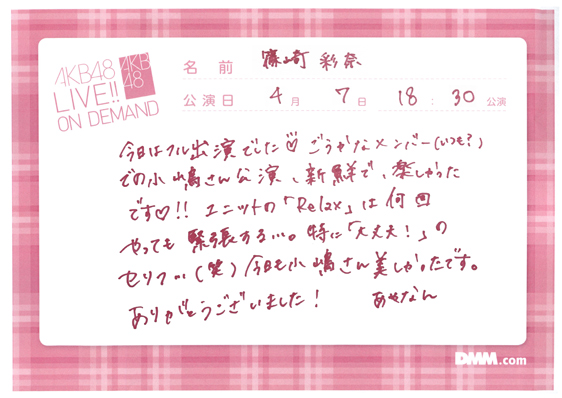 AKB48
LIVE!!
ON DEMAND
AKB
48
名前 篠崎 彩奈
公演日 4月 7日 18:30公演
今日はフル出演でした♡ ごうかなメンバー(いつも?)
での小嶋さん公演、新鮮で、楽しかった
です♡!! ユニットの「Relax」は何回
やっても緊張する…。特に「大丈夫!」の
セリフ…(笑) 今日も小嶋さん美しかったです。
ありがとうございました! あやなん
DMM.com